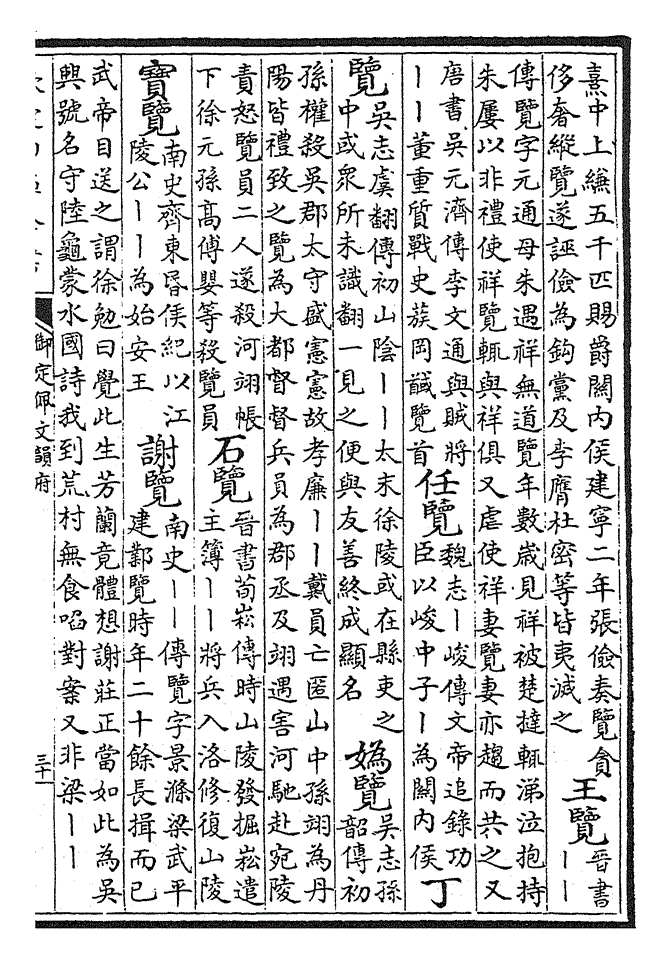 熹中上縑五千匹賜爵關内侯建寧二年張儉奏覽貪
侈奢縱覽遂誣儉為鈎黨及李膺杜密等皆夷滅之
王覽
晉書
——
傳覽字元通母朱遇祥無道覽年數歳見祥被楚撻輒涕泣抱持
朱屢以非禮使祥覽輒與祥俱又虐使祥妻覽妻亦趨而共之又
唐書吳元濟傳李文通與賊將
——董重質戰史蔟岡馘覽首
任覽
魏志—峻傳文帝追録功
臣以峻中子—為關内侯
丁
覽
吳志虞翻傳初山陰——太末徐陵或在縣吏之
中或衆所未識翻一見之便與友善終成顯名
媯覽
吳志孫
韶傳初
孫權殺吳郡太守盛憲憲故孝廉——戴員亡匿山中孫翊為丹
陽皆禮致之覽為大都督督兵員為郡丞及翊遇害河馳赴宛陵
責怒覽員二人遂殺河翊帳
下徐元孫髙傅嬰等殺覽員
石覽
晉書荀崧傳時山陵發掘崧遣
主簿——將兵入洛修復山陵
寳覽
南史齊東昏侯紀以江
陵公——為始安王
謝覽
南史——傳覽字景滌梁武平
建鄴覽時年二十餘長揖而已
武帝目送之謂徐勉曰覺此生芳蘭竟體想謝莊正當如此為吳
興號名守陸龜蒙水國詩我到荒村無食啗對案又非梁——
御定佩文韻府